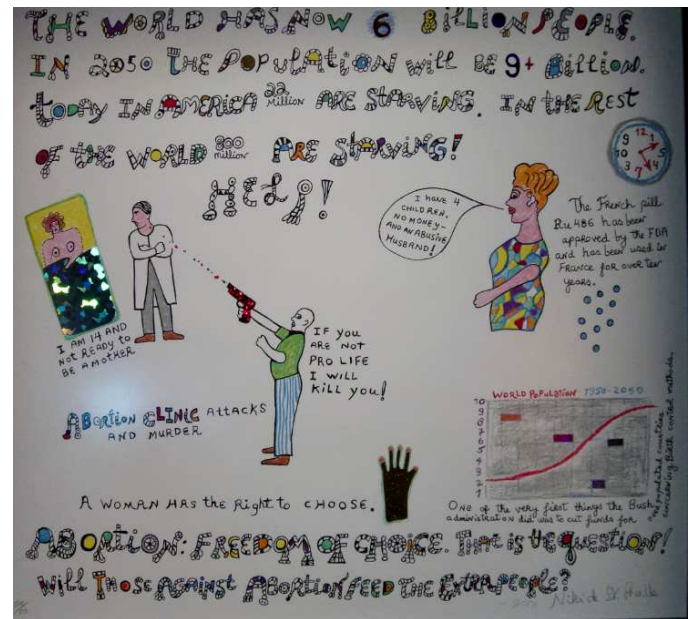 THE WORLD HAS NOW 6 BILLION PEOPLE.
IN 2050 THE POPULATION WILL BE 9+ BILLION.
TODAY IN AMERICA 22 Million ARE STARVING. IN THE REST
OF THE WORLD 800 million ARE STARVING!
HELP!
9 12 1
10 5
3 7 4
I HAVE 4
CHILDREN.
NO MONEY-
AND AN ABUSIVE
HUSBAND!
The French pill
Ru 486 has been
approved by the FDA
and has been used in
FRANCE for over ten
years.
I AM 14 AND
NOT READY to
BE A MOTHER
IF you
ARE NOT
PRO LIFE
I WILL
KILL you!
ABORTION CLINIC ATTACKS
AND MURDER
WORLD POPULATION 1950-2050.
10
9
8
7
6
5
4
3
2
1
A WOMAN HAS the Right to CHOOSE.
ONE of the very first things the Bush
administration did was to cut funds for
populated countries
concerning Birth control methods.
ABORTION: FREEDOM OF CHOICE. THAT IS the QUESTION!
WILL THOSE AGAINST ABORTION FEED THE EXTRA PEOPLE?
Niki de St. Phalle